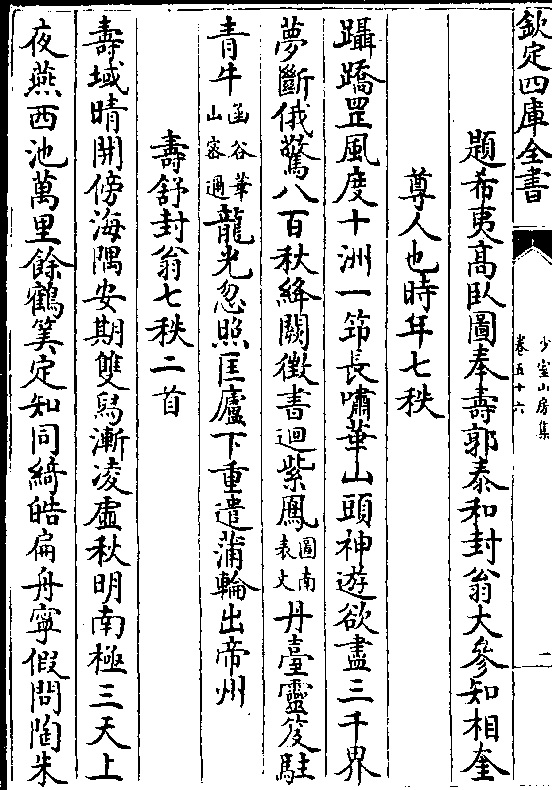 欽定四庫全書
少室山房集
卷五十六
二
題希夷髙臥圖奉壽郭泰和封翁大參知相奎
尊人也時年七秩
躡蹻罡風度十洲一笻長嘯華山頭神遊欲盡三千界
夢斷俄驚八百秋絳闕徴書迴紫鳳圖南表文丹臺靈笈駐
青牛函谷華山密邇龍光忽照匡廬下重遣蒲輪出帝州
壽舒封翁七秩二首
壽域晴開傍海隅安期雙舄漸凌虛秋明南極三天上
夜燕西池萬里餘鶴筭定知同綺皓扁舟寧假問陶朱